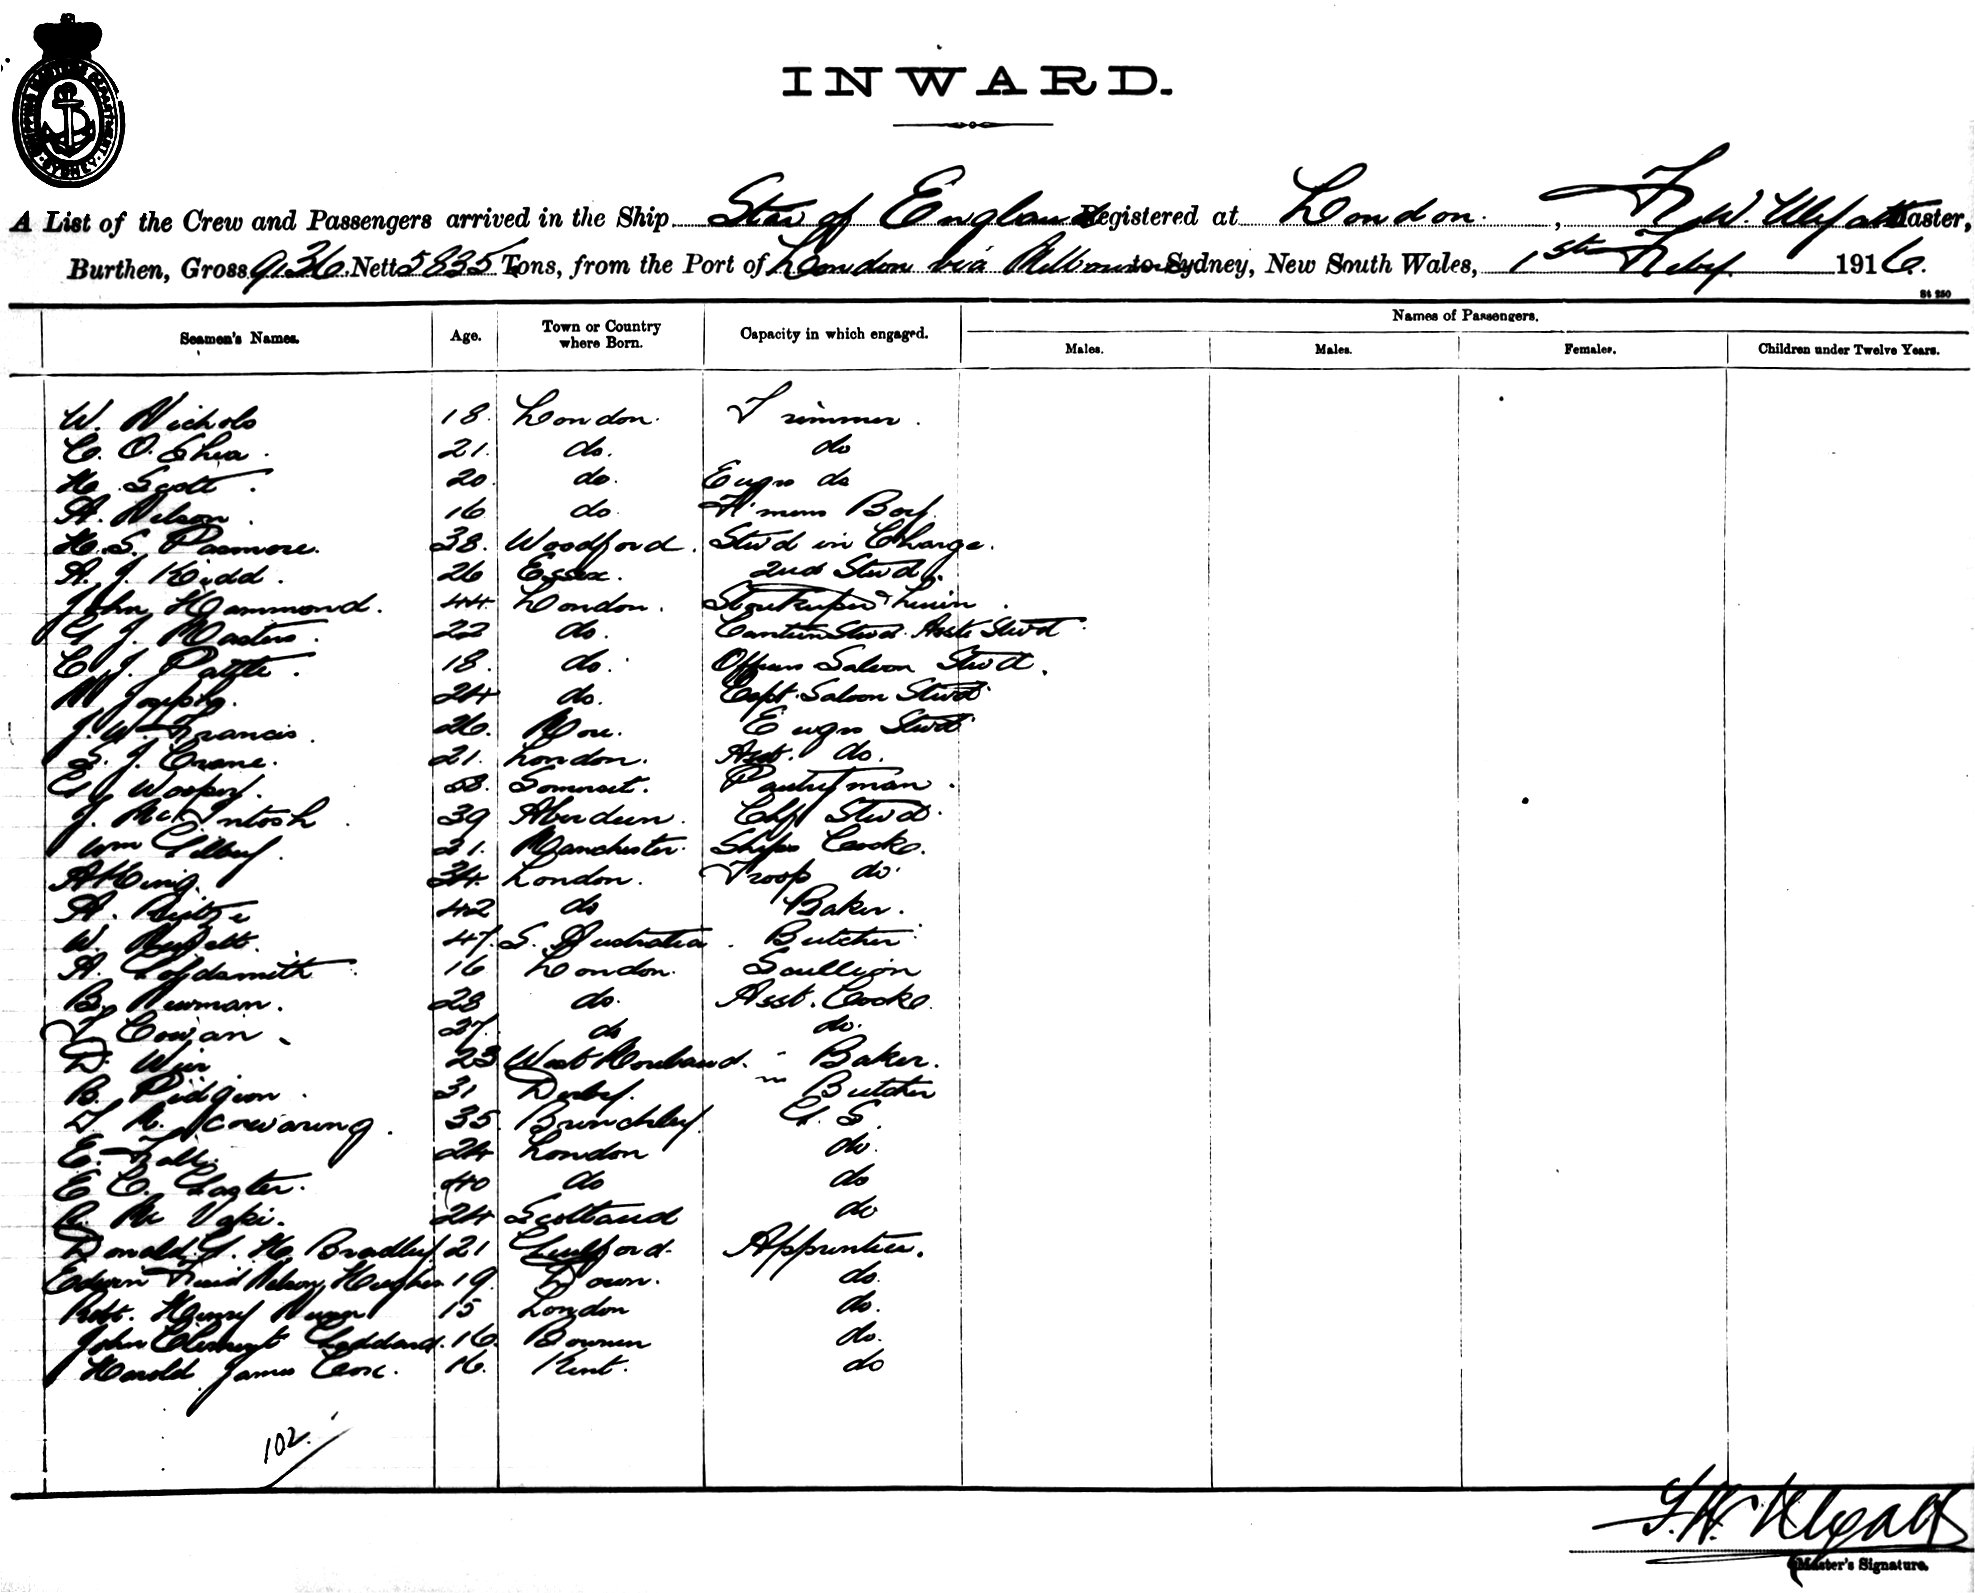 SHIPPING MASTERS DEPARTMENT SYDNEY
INWARD.
A List of the Crew and Passengers arrived in the Ship Star of England Registered at London, F. W. Wyatt Master,
Burthen, Gross 9136 Nett 5835 Tons, from the Port of London via Melbourne to Sydney, New South Wales, 1st Feby 1916.
St 250
Seamen's Names. Age. Town or Country where Born. Capacity in which engaged. Names of Passengers.
Males. Males. Females. Children under Twelve Years.
W. Nichols 18. London. Trimmer.
C. O. Shea. 21. do. do
H. Scott. 20. do. Engrs do
A. Nelson. 16 do F'mens Boy
H. S. Pasmore. 38. Woodford. Stwd in Charge.
A. J. Kidd. 26 Essex. 2nd Stwd.
John Hammond. 44. London. Storekeeper & Linen.
G. J. Masters. 22 do. Canteen Stwd. Asst Stwd
C. J. Pattle. 18. do. Officers Saloon Stwd.
M Josephs. 24 do. Capt. Saloon Stwd
J. W. Francis. 26. Engrs Stwd
S. J. Crane. 21. London. Asst. do.
G. Somerset. Pantryman.
J. McIntosh. 39 Aberdeen. Chf Stwd.
Wm 31. Manchester. Ships Cook.
A King. 34. London. Troop do.
A. 42 do Baker.
W. 47. S. Australia. Butcher
A. Goldsmith 16 London. Scullion
B. Newman. 28 do. Asst. Cook
Cowan. 37. do do.
D. Weir 23 " Baker.
B. Pidgion. 31 Derby. " Butcher
35. Brenchley G. S.
E. 24 London do.
E C. 40 do do
Mc 24 Scotland do
Donald G. H. Bradley 21 Guilford. Apprentice.
Edwin Nelson Hughes 19. Down. do.
Robt. Henry Nunn 15 London do.
John Clement Goddard. 16. do.
Harold James Cox. 16. Kent. do
102.
F. W. Wyatt
Master's Signature.